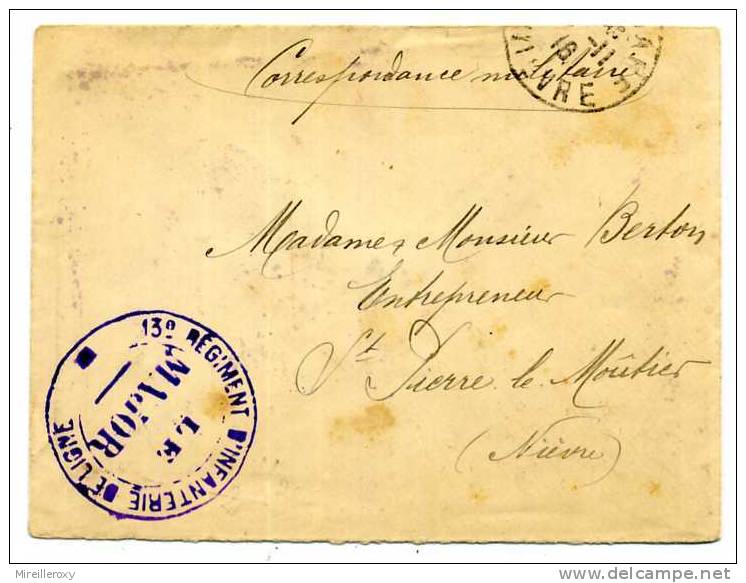 Correspondance militaire
16 -11
VRE
Madame & Monsieur Berton
Entrepreneur
St Pierre le Moûtier
(Nièvre)
13e RÉGIMENT D'INFANTERIE DE LIGNE
LE
MAJOR
Mireilleroxy
www.delcampe.net